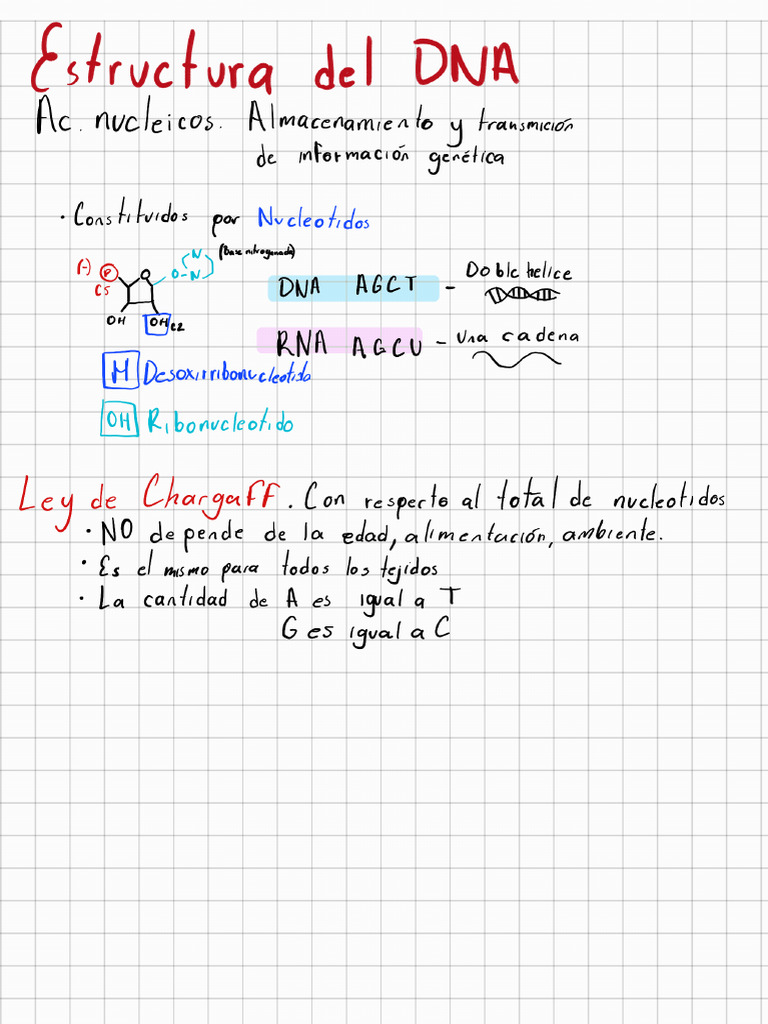 Estructura del DNA
Ac. nucleicos. Almacenamiento y transmición
de información genética
· Constituidos por Nucleotidos
(Base nitrogenada)
N
(-) P O O-N
C5
OH OH C2
DNA AGCT - Doble helice
RNA AGCU - Una cadena
H Desoxirribonucleotido
OH Ribonucleotido
Ley de Chargaff. Con respecto al total de nucleotidos
· NO depende de la edad, alimentación, ambiente.
· Es el mismo para todos los tejidos
· La cantidad de A es igual a T
G es igual a C